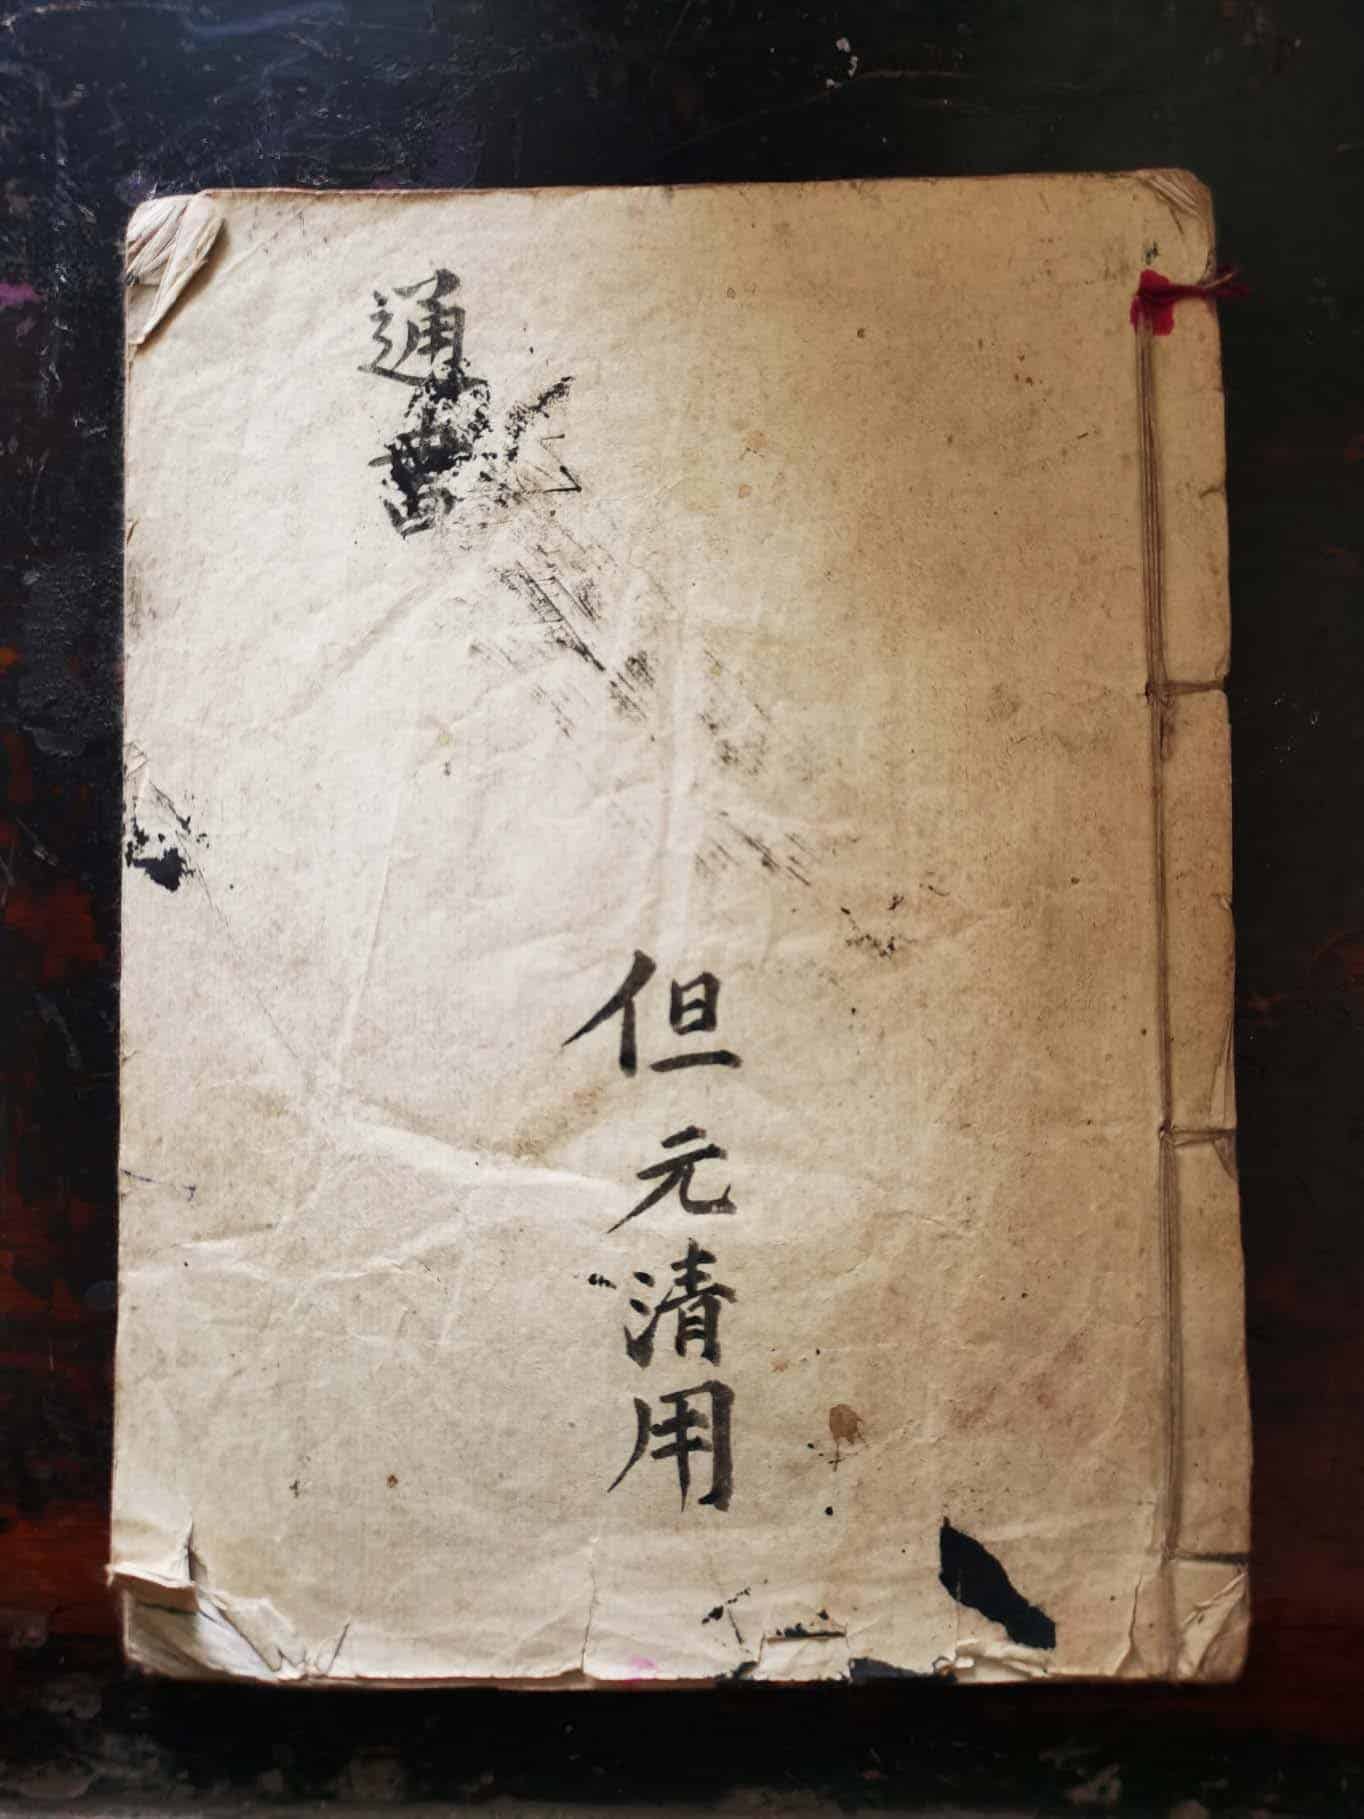 但元清用
通